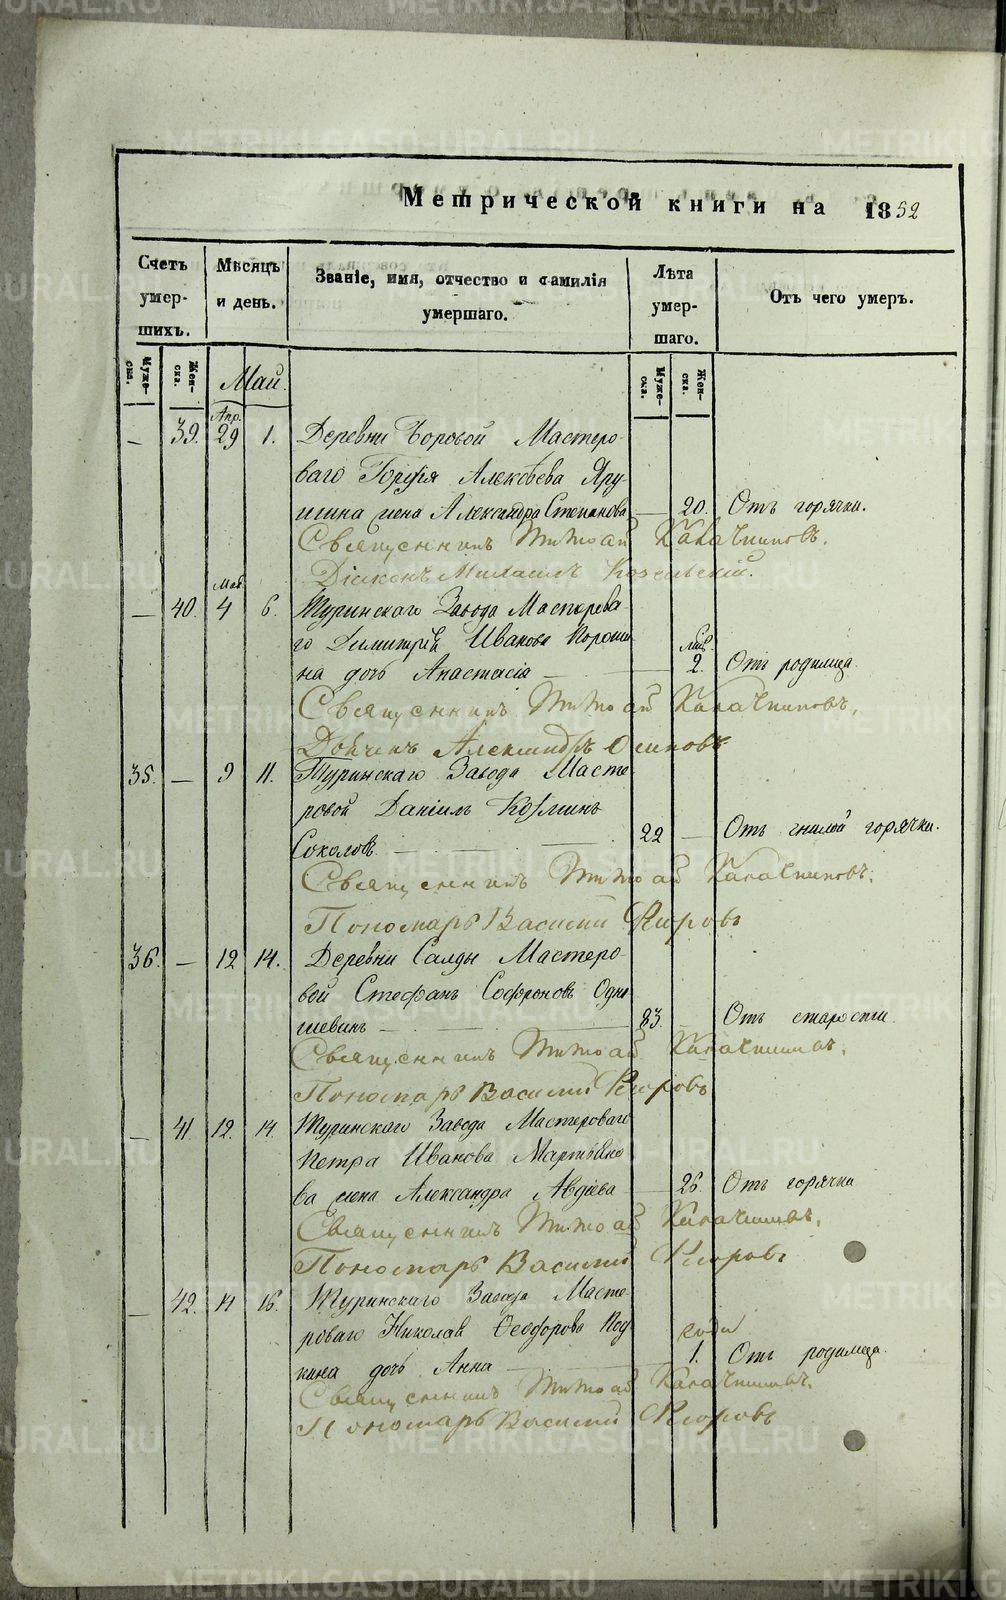 Метрической книги на 1852
Счетъ умер-шихъ.
Мѣсяцъ и день.
Званіе, имя, отчество и фамилія умершаго.
Лѣта умер-шаго.
Отъ чего умеръ.
Муже-ска.
Жен-ска.
Муже-ска.
Жен-ска.
Май.
Апр.
— 39. 29 1. Деревни Боровой Мастеро-
ваго Горгія Алексѣева Яру-
шина жена Александра Степанова — 20. Отъ горячки.
Священникъ Тимоѳей Калачниковъ.
Діаконъ Михаилъ
Май
— 40. 4 6. Туринскаго Завода Мастерова-
го Димитрія Иванова Пороши
на дочь Анастасія — 2. Отъ родимца.
Священникъ Тимоѳей Калачниковъ.
Дьячекъ Александръ Осиповъ
35. — 9 11. Туринскаго Завода Масте-
ровой Даніилъ Козминъ
Соколовъ — 22 — Отъ гнилой горячки.
Священникъ Тимоѳей Калачниковъ.
Пономарь Василій
36. — 12 14. Деревни Салды Мастеро-
вой Стефанъ Софроновъ
83. Отъ старости.
Священникъ Тимоѳей Калачниковъ.
Пономарь Василій
— 41. 12. 14. Туринскаго Завода Мастероваго
Петра Иванова Мартьяно
ва жена Александра Авдіева — 26. Отъ горячки
Священникъ Тимоѳей Калачниковъ.
Пономарь Василій
— 42. 14 16. Туринскаго Завода Масте-
роваго Николая Ѳеодорова
кина дочь Анна — года 1. Отъ родимца.
Священникъ Тимоѳей Калачниковъ.
Пономарь Василій
METRIKI.GASO-URAL.RU